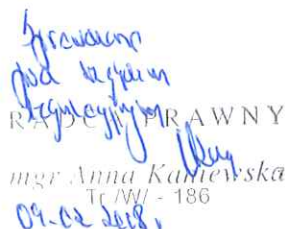 Sprawdzono
pod względem
legislacyjnym
RADCA PRAWNY
mgr Anna Kaniewska
Tr /W/ - 186
09.02.2018r.